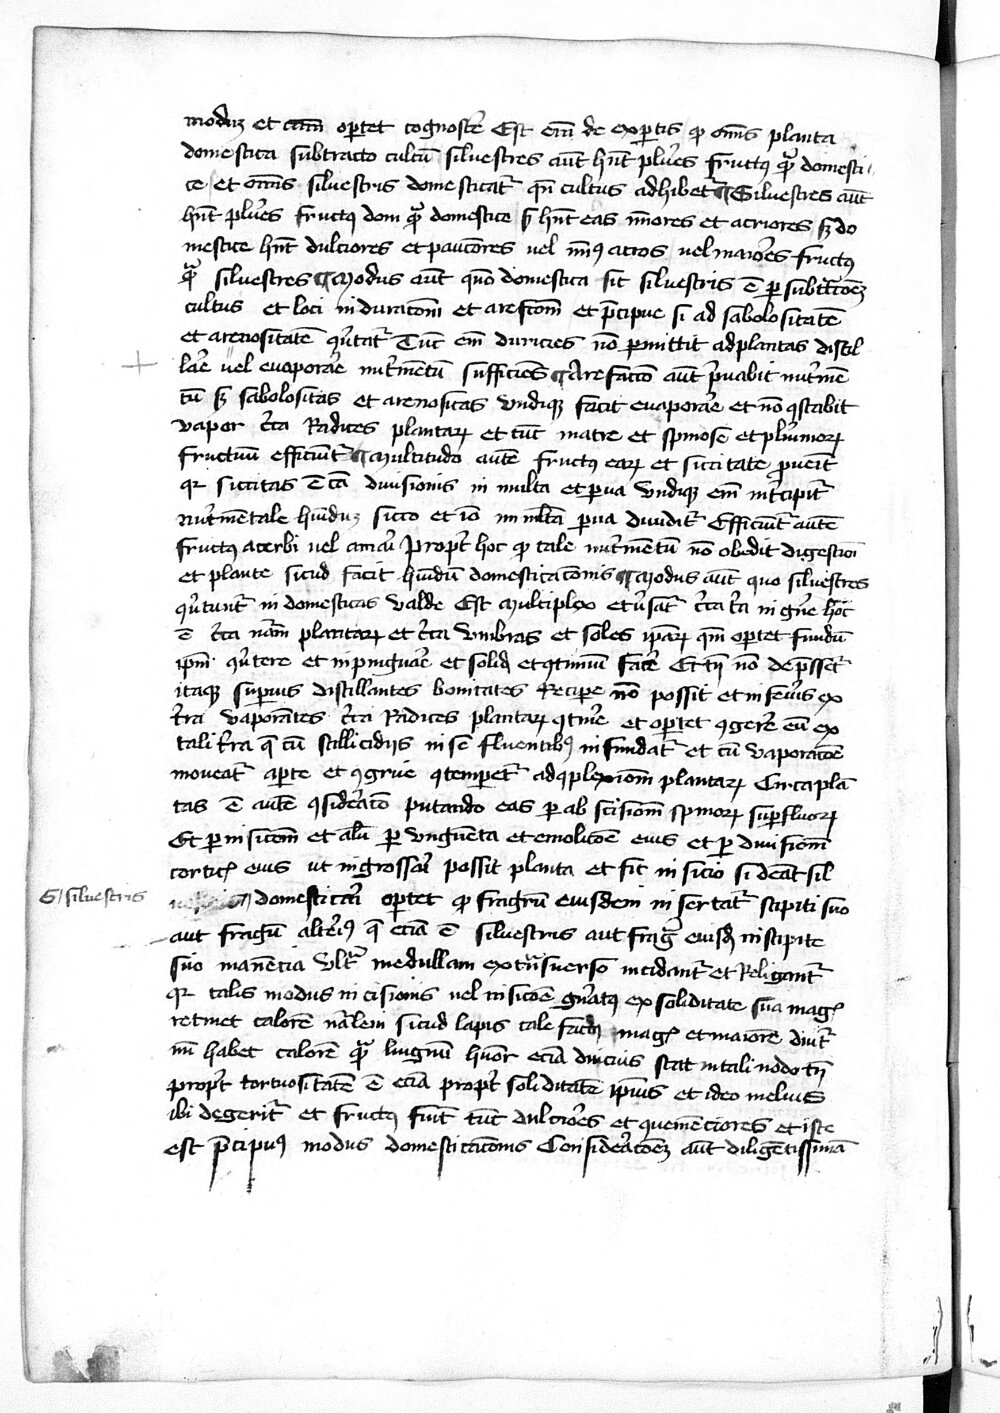 modum et causam oportet cognoscere Est enim de expertis quod omnis planta
domestica subtracto cultu silvestres autem hnt plures fructus quam domesti
ce et omnis silvestris domesticatur quando cultus adhibetur ¶ Silvestres autem
hnt plures fructus dom quam domestice sed hnt eas minores et acriores sed do
mestice hnt dulciores et pauciores vel minus acros vel maiores fructus
quam silvestres ¶ Modus autem quo domestica fit silvestris est per subtractionem
cultus et loci induracionem et arefactionem et precipue si ad sabolositatem
et arenositatem Tunc enim duricies non permittit ad plantas distil
lare vel evaporare nutrimentum sufficiens ¶ Arefactio autem privabit nutrimen
tum sed sabolositas et arenositas undique facit evaporare et non constabit
vapor circa Radices plantarum et tunc macre et spinose et plurimorum
fructuum efficiuntur ¶ Multitudo autem fructus earum et siccitate provenit
quia siccitas est causa divisionis in multa et parva undique enim intercipitur
nutrimentale humidum sicco et ideo in multa parva dividitur Efficiuntur autem
fructus acerbi vel amari Propter hoc quod tale nutrimentum non obedit digestioni
et plante sicud facit humidum domesticacionis ¶ Modus autem quo silvestres
in domesticas valde Est Multiplex et versatur circa terram in genere hoc
est circa naturam plantarum et circa umbras et soles ipsarum quoniam oportet fundum
ipsum et inpinguare et solid et continuum facere Et tamen non
itaque superius distillantes bonitates Recipere non possit et inferius ex
terra vaporantes circa Radices plantarum continere et oportet congerere eum ex
tali terra que cum stillicidiis in se fluentibus infundatur et cum vaporacione
moveatur aperte et congrue contemperetur ad complexionem plantarum Circa plan
tas est autem consideracio putando eas per abscisionem spinorum superfluorum
Et per insicionem et alium per unguenta et emolicionem eius et per divisionem
corticis eius ut ingrossari possit planta et fit insicio si debeat sil
domesticari oportet quod fragrum eiusdem inseratur stipiti suo
S/ silvestris
aut fragum alterius que eciam est silvestris aut fragrum eiusdem in stipite
suo manencia ultra medullam ex transverso incidantur et Religantur
quia talis modus incisionis vel insicionis generatus ex soliditate sua magis
retinet calorem naturalem sicud lapis cale magis et maiorem diuturnum
habet calorem quam lingnum humor eciam diucius stat in tali nodo tamen
propter tortuositatem est eciam propter soliditatem ipsius et ideo melius
ibi degeritur et fructus fiunt tunc dulciores et quemenciores et iste
est precipuus modus domesticacionis Consideracionem autem diligentissimam